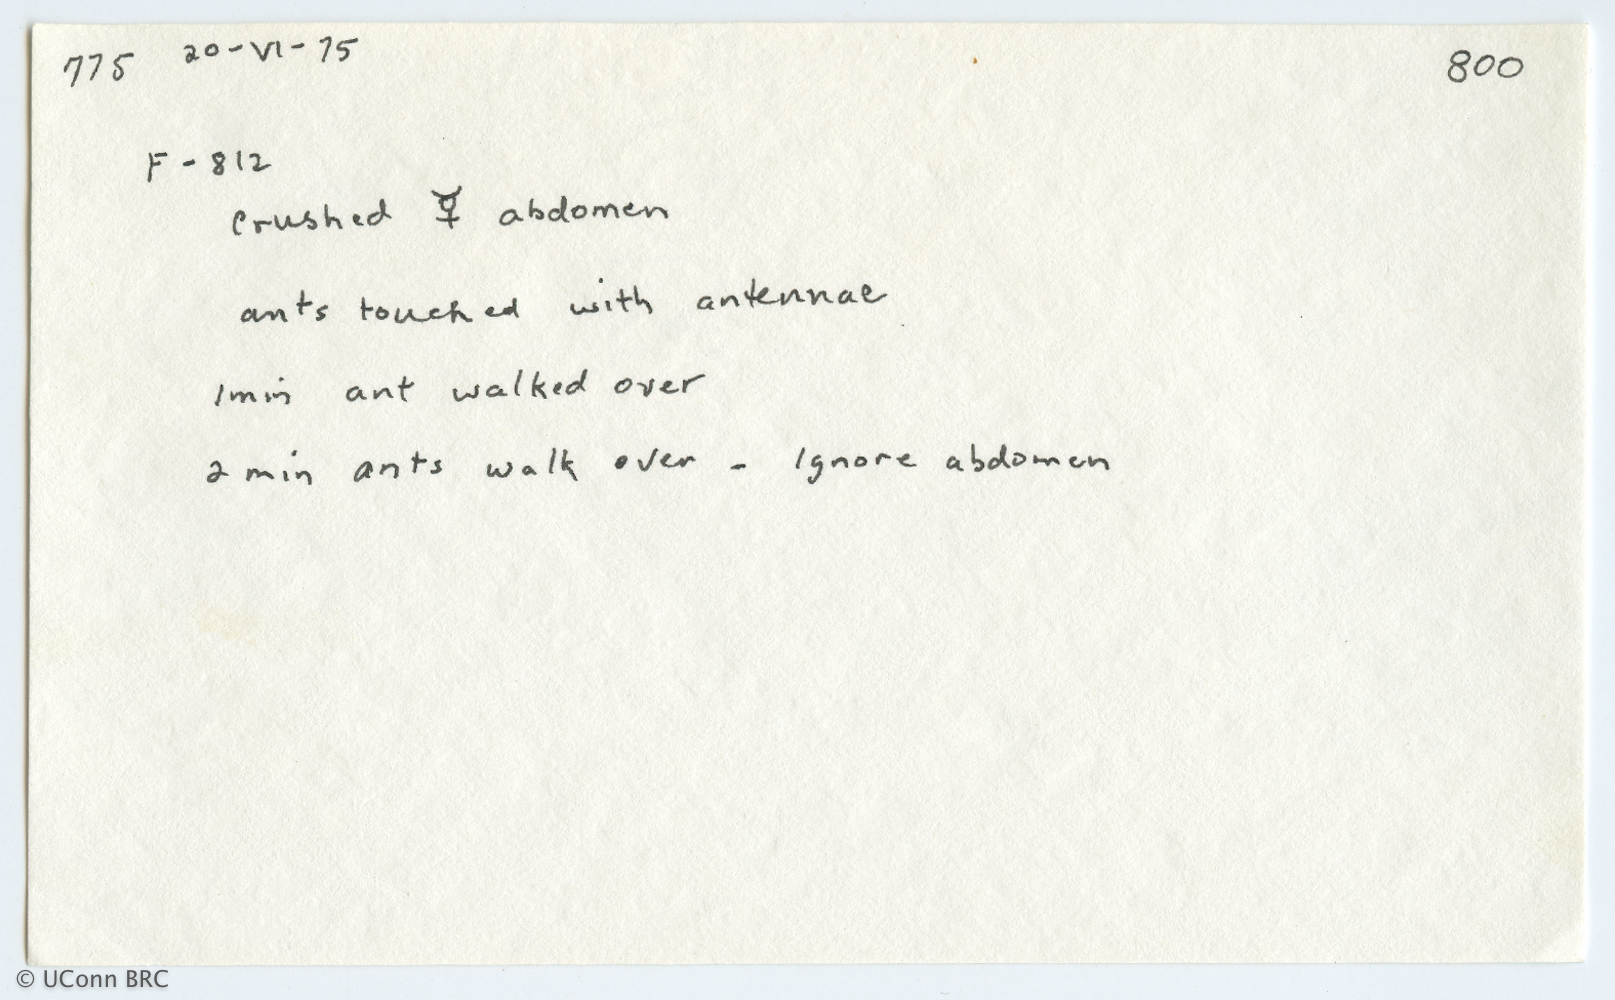 775 20-VI-75 800
F-812
Crushed ☿ abdomen
ants touched with antennae
1min ant walked over
2 min ants walk over - Ignore abdomen
© UConn BRC